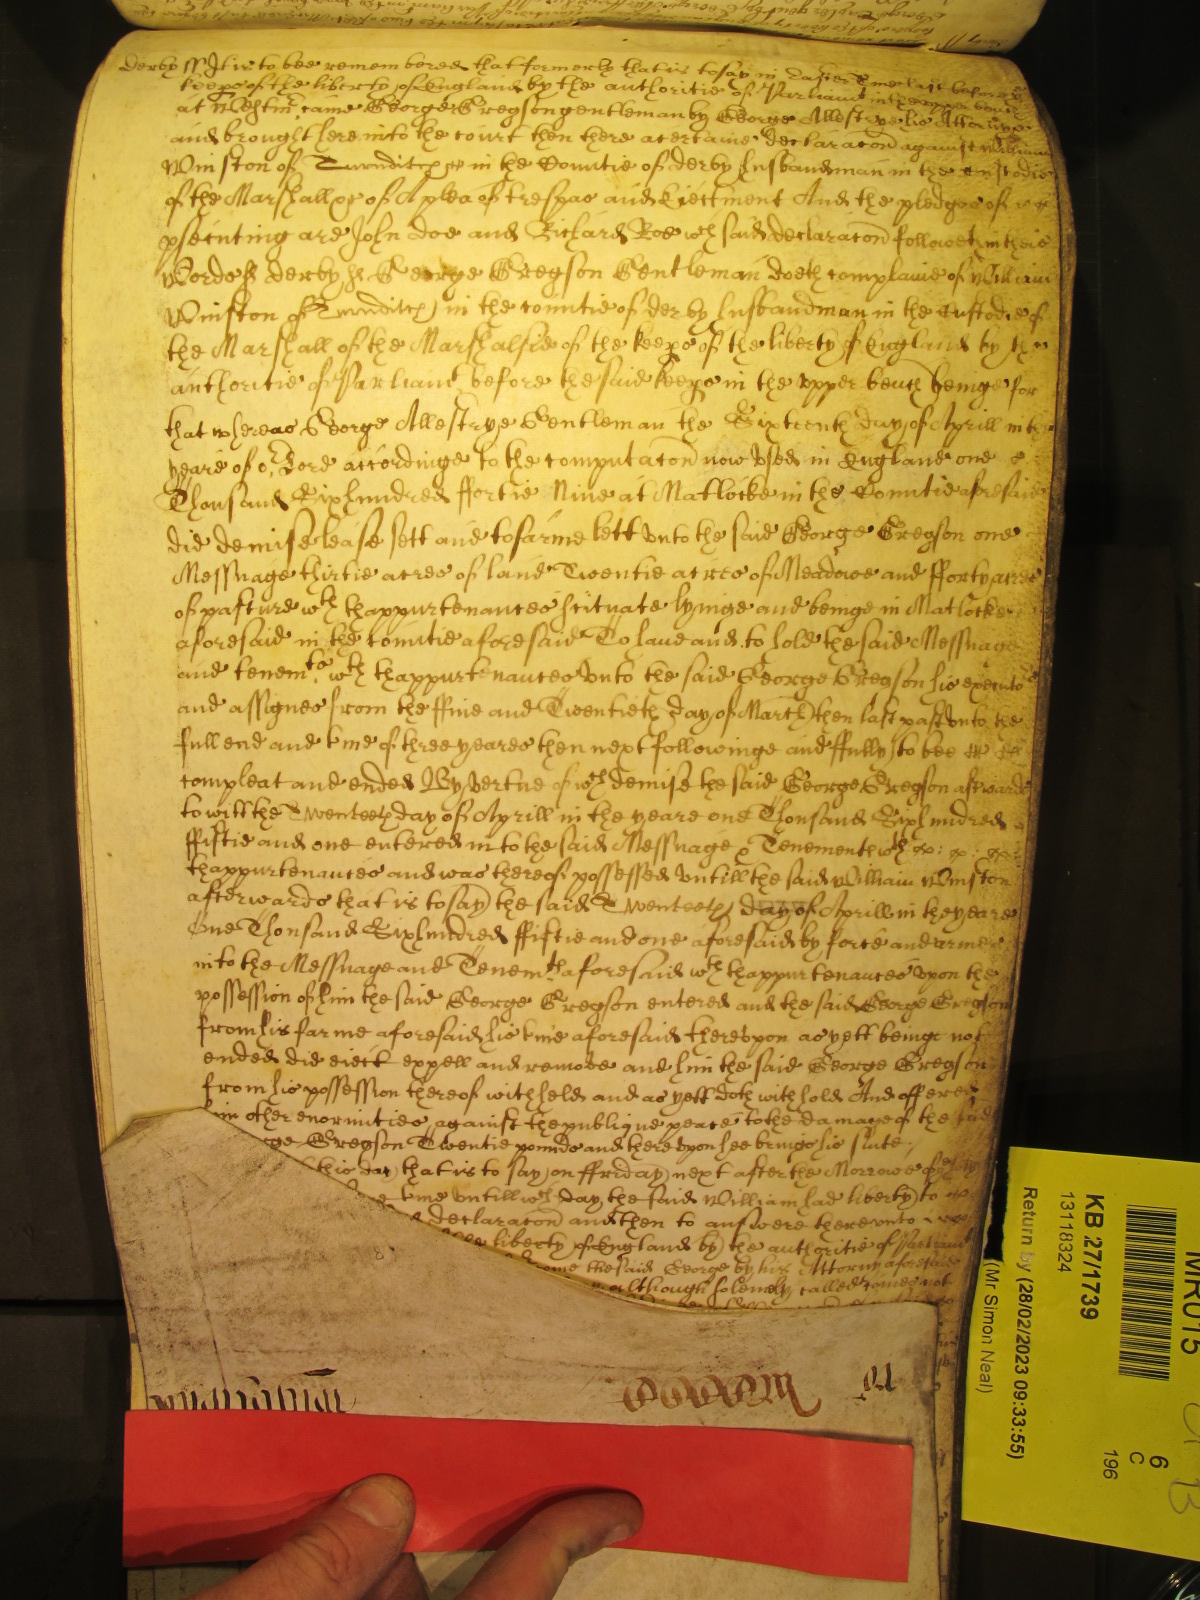 derby ss It is to bee remembered that formerly that is to say in Easter Tme last before the
keeps of the liberty of England by the authoritie of Parliamt in the upper bench
at Westmr came George Gregson gentleman by George Allestrye his Attorny
and brought here into the court then there a certaine declaracon against William
Winston of in the Countie of derby husbandman in the custodie
of the Marshall &c of A plea of trespas and Eiectment And the pledges of
psecuting are John Doe and Richard Roe wch said declaracon followeth in theis
Words ss derby ss George Gregson Gentleman doeth complaine of William
Winston of in the countie of derby husbandman in the custodie of
the Marshall of the Marshalsie of the keeps of the liberty of England by the
authoritie of Parliamt before the said keeps in the upper bench beinge for
that whereas George Allestrye Gentleman the Sixteenth day of Aprill in the
yeare of or Lord accordinge to the computacon now used in England one
Thousand Sixhundred ffortie Nine at Matlocke in the Countie aforesaid
did demise lease sett and to farme lett unto the said George Gregson one
Messuage thirtie acres of land Twentie acres of Meadowe and fforty acres
of pasture wth thappurtenances scituate lyinge and beinge in Matlocke
aforesaid in the countie aforesaid To have and to hold the said Messuage
and tenemts wth thappurtenances unto the said George Gregson his executors
and assignes from the ffive and Twentieth day of March then last past unto the
full end and tme of three yeares then next followinge and ffully to bee
compleat and ended By vertue of wch demise the said George Gregson afterwards
to witt the Twenteeth day of Aprill in the yeare one Thousand Sixhundred
ffiftie and one entered into the said Messuage & Tenement wth
thappurtenances and was thereof possessed untill the said William Winston
afterwards that is to say the said Twenteeth day of Aprill in the yeare
One Thousand Sixhundred ffiftie and one aforesaid by force and armes
into the Messuage and Tenemts aforesaid wth thappurtenances upon the
possession of him the said George Gregson entered and the said George Gregson
from his farme aforesaid his tme aforesaid thereupon as yett beinge not
ended did eiect expell and remove and him the said George Gregson
from his possession thereof withheld and as yett doth withhold And offered
him other enormities against the publique peace to the damage of the said
George Gregson Twentie pounds and thereupon hee brings his suite
this day that is to say on ffriday next after the Morrowe of
tme untill wch day the said William had liberty to
declaracon and then to answere thereunto
liberty of England by the authoritie of Parliamt
came the said George by his Attorny aforesaid
although solemly called comes not
KB 27/1739
13118324
Return by (28/02/2023 09:33:55)
(Mr Simon Neal)
MR015
6
C
196